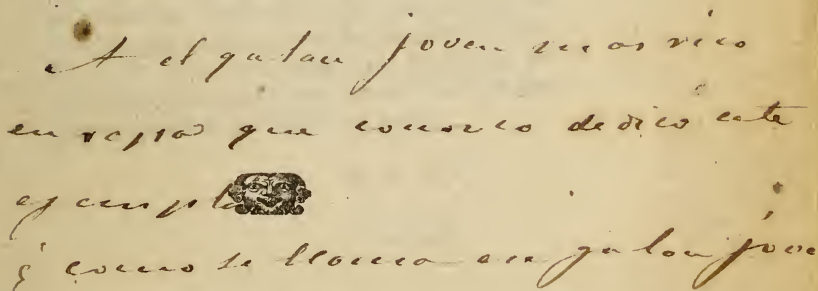 A el galan joven mas rico
en ropa que conosco dedico este
ejempla
¿ como se llama ese galan jove